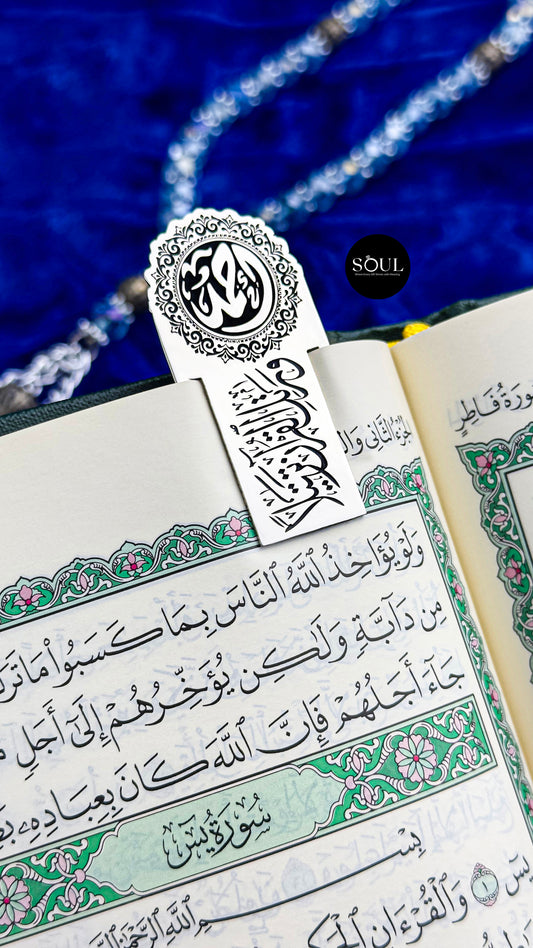 احمد
SOUL
ورتل القرآن ترتيلا
الجزء الثاني وال
سورة فاطر
وَلَوْ يُؤَاخِذُ ٱللَّهُ ٱلنَّاسَ بِمَا كَسَبُوا۟ مَا تَرَكَ
مِن دَآبَّةٍ وَلَٰكِن يُؤَخِّرُهُمْ إِلَىٰٓ أَجَلٍ
جَآءَ أَجَلُهُمْ فَإِنَّ ٱللَّهَ كَانَ بِعِبَادِهِۦ
سُورَةُ يسٓ
بِسْمِ ٱللَّهِ ٱلرَّحْمَٰنِ
يسٓ ١ وَٱلْقُرْءَانِ ٱلْحَكِ